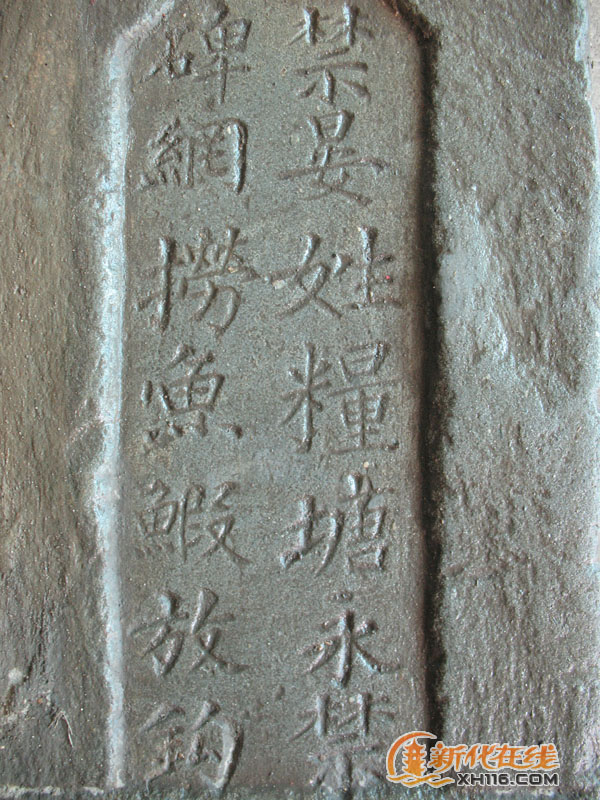 禁晏姓糧塘永禁
碑網撈魚鰕放鈎
新代在线
XH116.COM